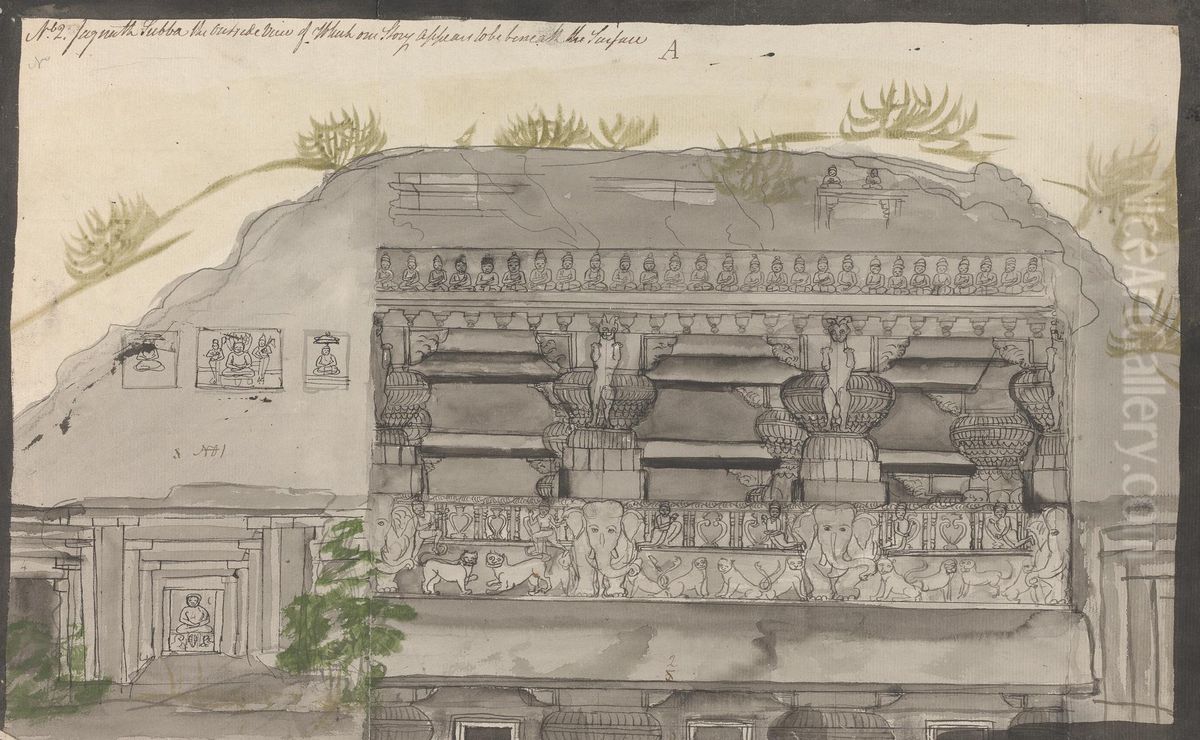 No. 2. Jagnath Subba the outside View of Which one Story appears to be beneath the Surface
No
A
8 No 1
2
NiceArtGallery.com